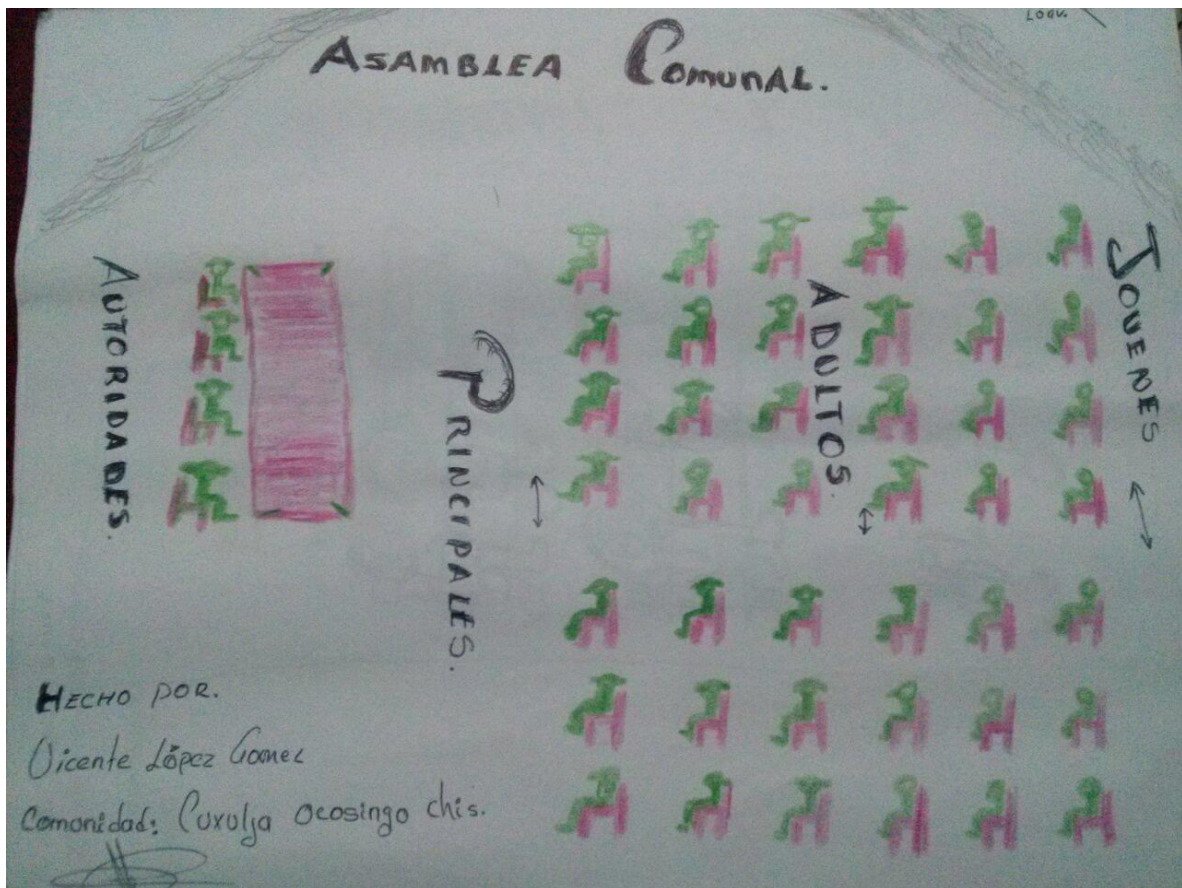 ASAMBLEA COMUNAL.
AUTORIDADES.
PRINCIPALES.
ADULTOS.
JOVENES
HECHO POR.
Vicente López Gomez
Comunidad: Cuxulja Ocosingo chis.